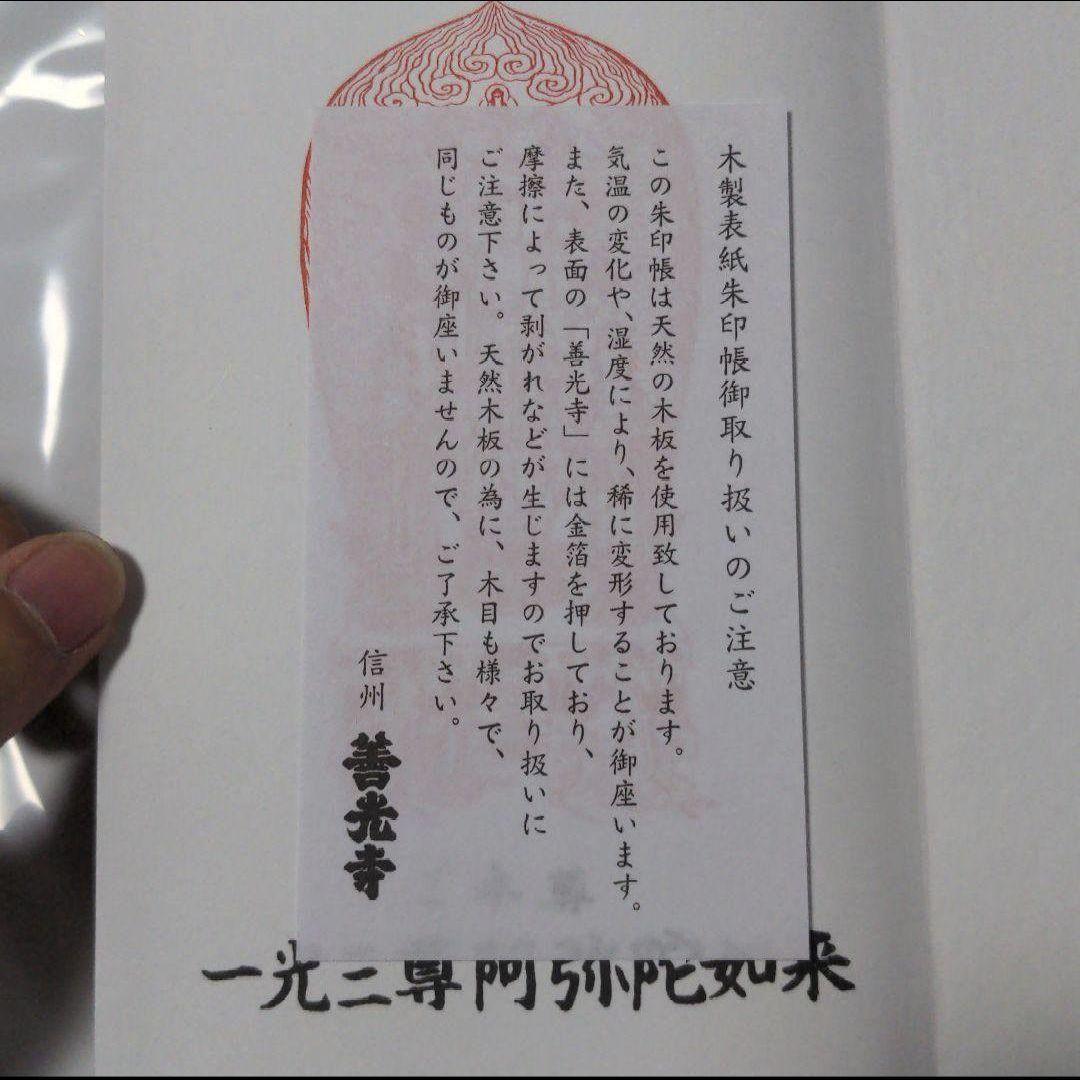 木製表紙朱印帳御取り扱いのご注意
この朱印帳は天然の木板を使用致しております。
気温の変化や、湿度により、稀に変形することが御座います。
また、表面の「善光寺」には金箔を押しており、
摩擦によって剥がれなどが生じますのでお取り扱いに
ご注意下さい。天然木板の為に、木目も様々で、
同じものが御座いませんので、ご了承下さい。
信州 善光寺
一光三尊阿弥陀如来